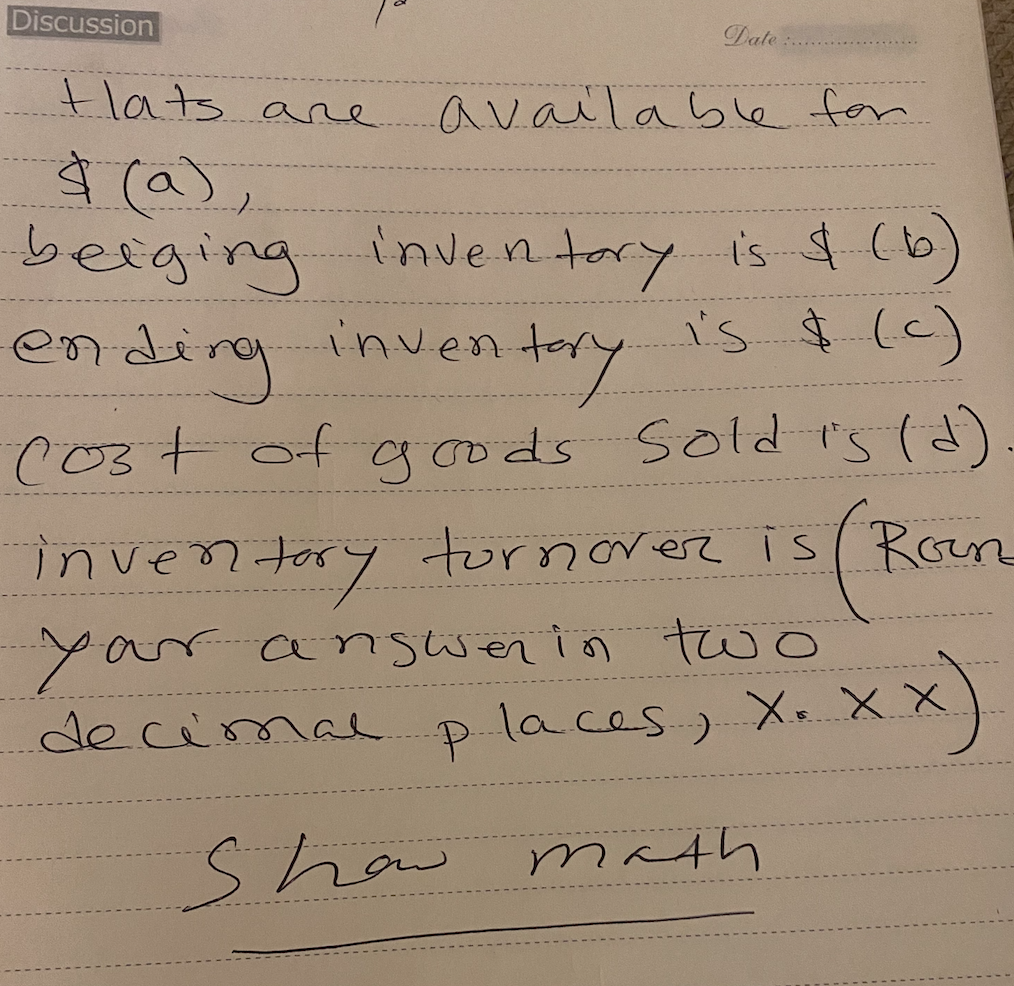 Discussion
Date :
Hats are available for
$ (a),
beiging inventory is $ (b)
ending inventory is $ (c)
Cost of goods Sold is (d).
inventory turnover is (Roun
your answer in two
decimal places, X.XX)
Show math